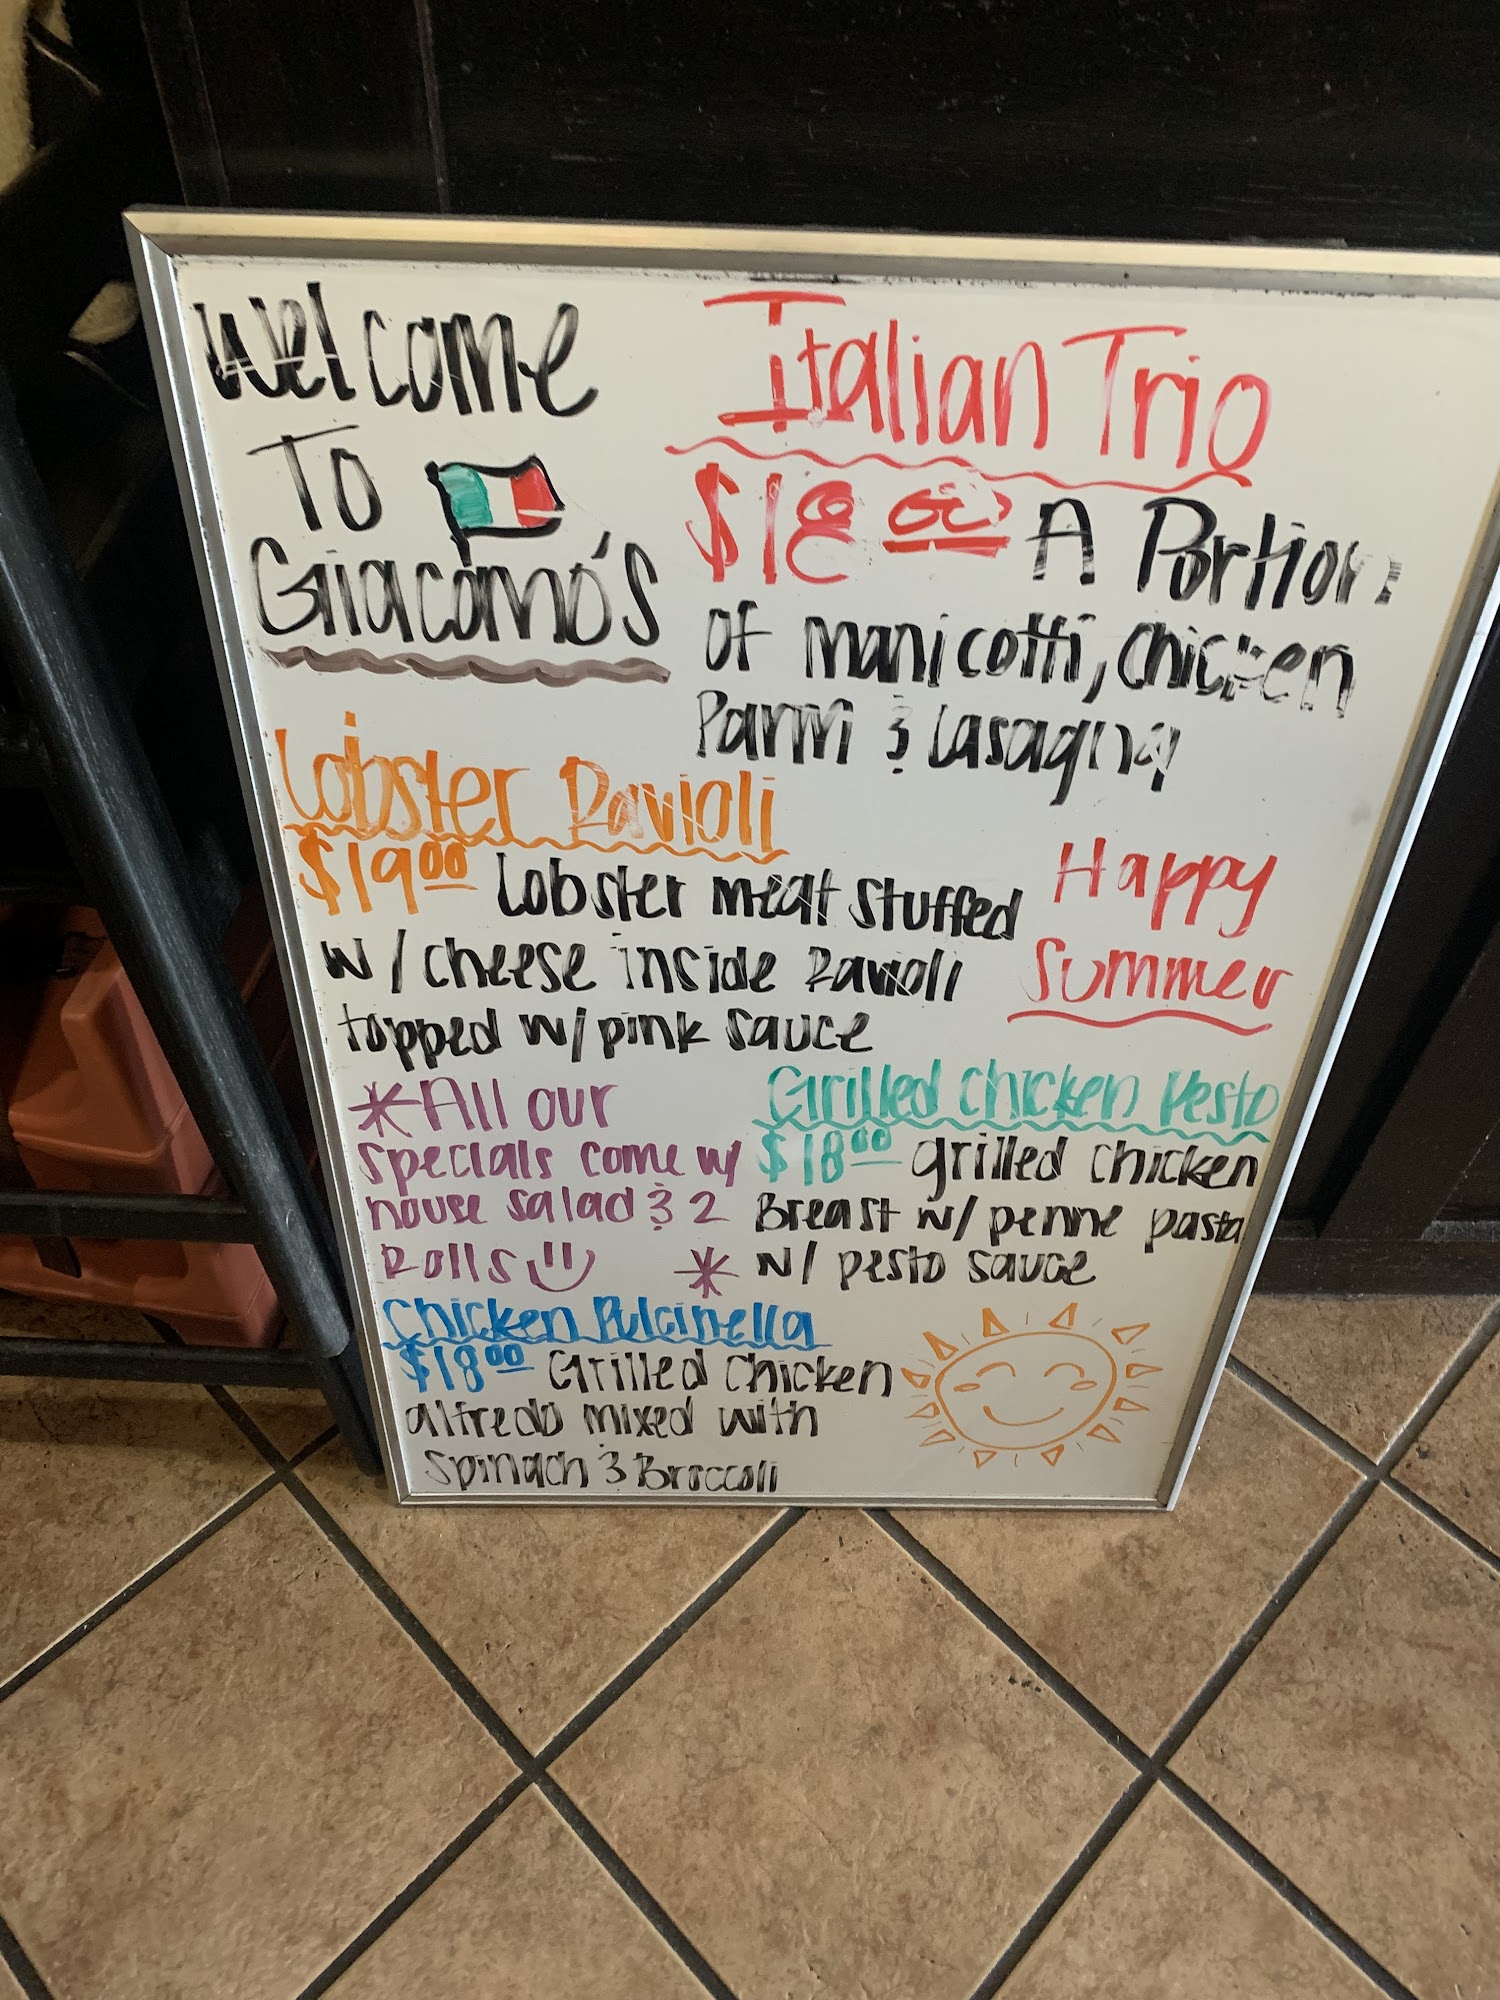 Welcome
To
Giacomo's
Italian Trio
$18.00 A Portion
of manicotti, chicken
Parm & Lasagna
Lobster Ravioli
$19.00 Lobster meat stuffed
w/ cheese inside Ravioli
topped w/ pink sauce
Happy
Summer
*All our
specials come w/
house salad & 2
Rolls *
Grilled Chicken Pesto
$18.00 grilled chicken
Breast w/ penne pasta
w/ pesto sauce
Chicken Pulcinella
$18.00 Grilled Chicken
alfredo mixed with
Spinach & Broccoli